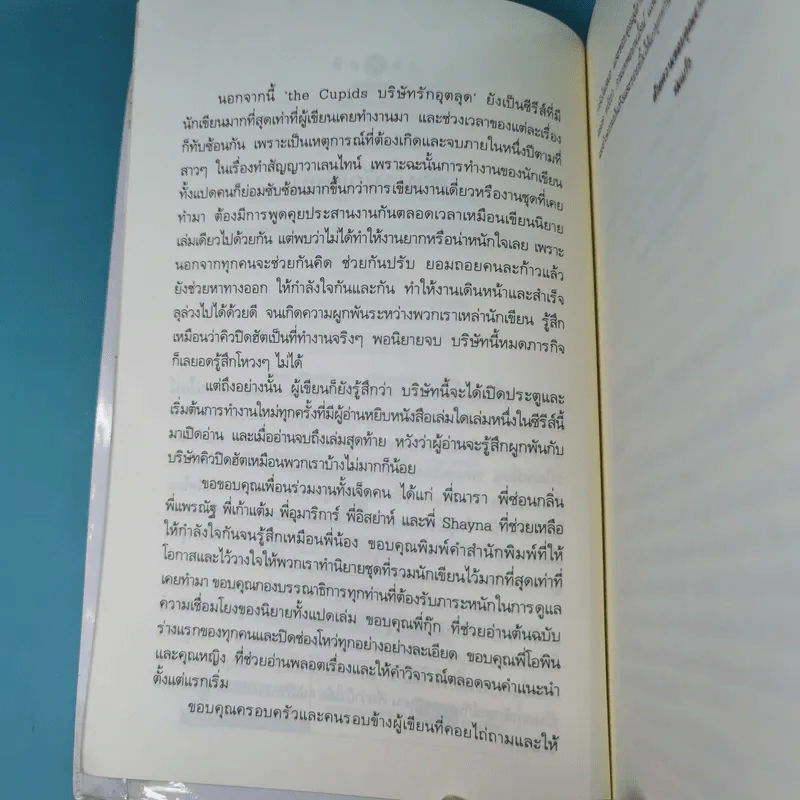 นอกจากนี้ 'the Cupids บริษัทรักอุตลุด' ยังเป็นซีรีส์ที่มี
นักเขียนมากที่สุดเท่าที่ผู้เขียนเคยทำงานมา และช่วงเวลาของแต่ละเรื่อง
ก็ทับซ้อนกัน เพราะเป็นเหตุการณ์ที่ต้องเกิดและจบภายในหนึ่งปีตามที่
สาวๆ ในเรื่องทำสัญญาวาเลนไทน์ เพราะฉะนั้นการทำงานของนักเขียน
ทั้งแปดคนก็ย่อมซับซ้อนมากขึ้นกว่าการเขียนงานเดี่ยวหรืองานชุดที่เคย
ทำมา ต้องมีการพูดคุยประสานงานกันตลอดเวลาเหมือนเขียนนิยาย
เล่มเดียวไปด้วยกัน แต่พบว่าไม่ได้ทำให้งานยากหรือน่าหนักใจเลย เพราะ
นอกจากทุกคนจะช่วยกันคิด ช่วยกันปรับ ยอมถอยคนละก้าวแล้ว
ยังช่วยหาทางออก ให้กำลังใจกันและกัน ทำให้งานเดินหน้าและสำเร็จ
ลุล่วงไปได้ด้วยดี จนเกิดความผูกพันระหว่างพวกเราเหล่านักเขียน รู้สึก
เหมือนว่าคิวปิดฮัตเป็นที่ทำงานจริงๆ พอนิยายจบ บริษัทนี้หมดภารกิจ
ก็เลยอดรู้สึกโหวงๆ ไม่ได้
แต่ถึงอย่างนั้น ผู้เขียนก็ยังรู้สึกว่า บริษัทนี้จะได้เปิดประตูและ
เริ่มต้นการทำงานใหม่ทุกครั้งที่มีผู้อ่านหยิบหนังสือเล่มใดเล่มหนึ่งในซีรีส์นี้
มาเปิดอ่าน และเมื่ออ่านจบถึงเล่มสุดท้าย หวังว่าผู้อ่านจะรู้สึกผูกพันกับ
บริษัทคิวปิดฮัตเหมือนพวกเราบ้างไม่มากก็น้อย
ขอขอบคุณเพื่อนร่วมงานทั้งเจ็ดคน ได้แก่ พี่ณารา พี่ซ่อนกลิ่น
พี่แพรณัฐ พี่เก้าแต้ม พี่อุมาริการ์ พี่อิสย่าห์ และพี่ Shayna ที่ช่วยเหลือ
ให้กำลังใจกันจนรู้สึกเหมือนพี่น้อง ขอบคุณพิมพ์คำสำนักพิมพ์ที่ให้
โอกาสและไว้วางใจให้พวกเราทำนิยายชุดที่รวมนักเขียนไว้มากที่สุดเท่าที่
เคยทำมา ขอบคุณกองบรรณาธิการทุกท่านที่ต้องรับภาระหนักในการดูแล
ความเชื่อมโยงของนิยายทั้งแปดเล่ม ขอบคุณพี่กุ๊ก ที่ช่วยอ่านต้นฉบับ
ร่างแรกของทุกคนและปิดช่องโหว่ทุกอย่างอย่างละเอียด ขอบคุณพี่โอพิน
และคุณหญิง ที่ช่วยอ่านพลอตเรื่องและให้คำวิจารณ์ตลอดจนคำแนะนำ
ตั้งแต่แรกเริ่ม
ขอบคุณครอบครัวและคนรอบข้างผู้เขียนที่คอยไถ่ถามและให้